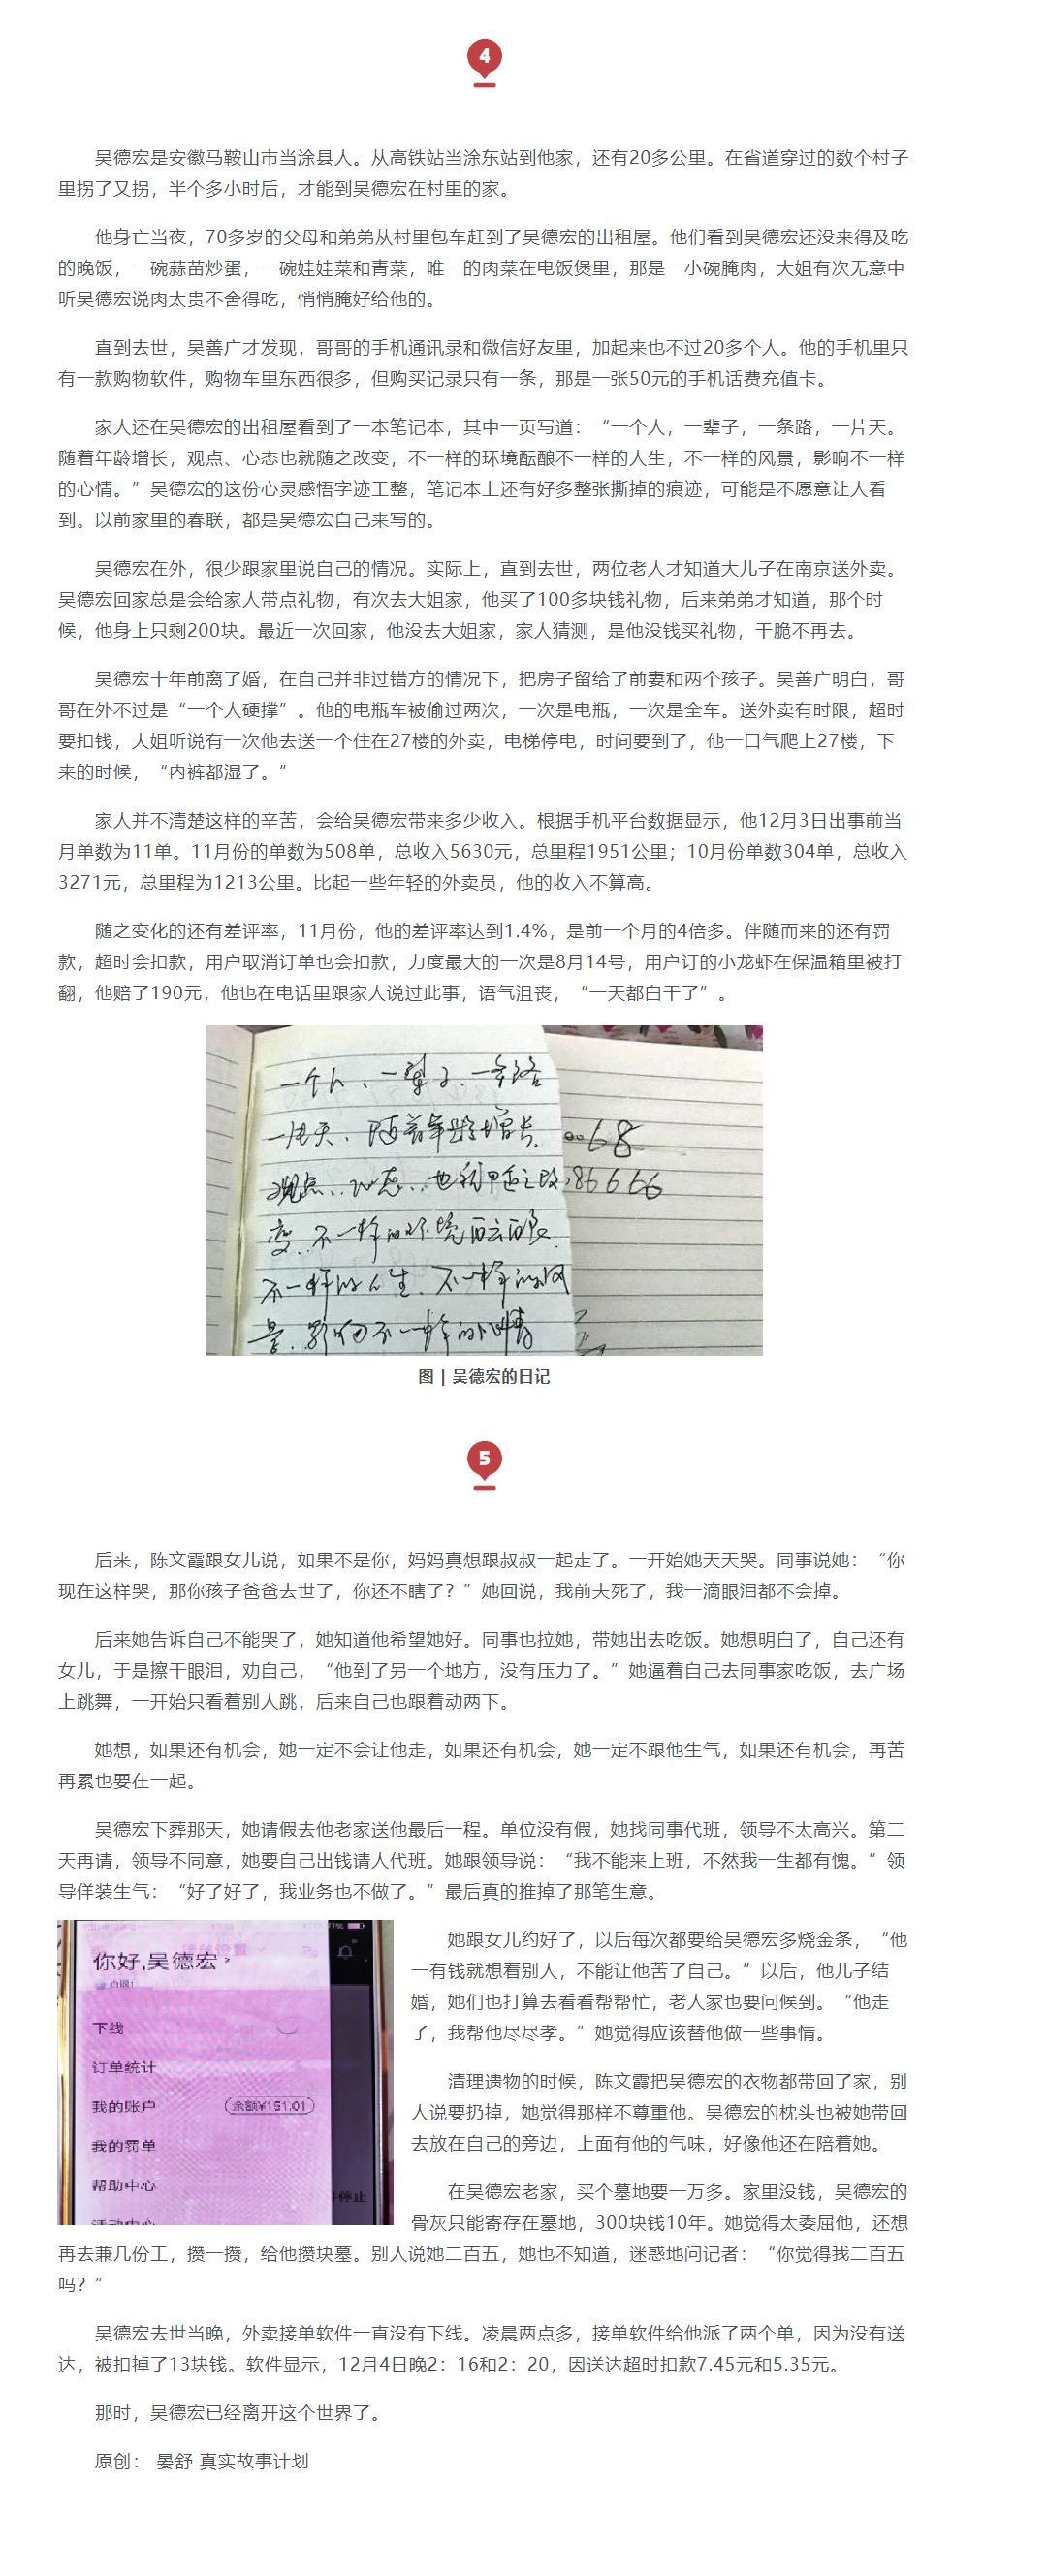 4
吴德宏是安徽马鞍山市当涂县人。从高铁站当涂东站到他家，还有20多公里。在省道穿过的数个村子
里拐了又拐，半个多小时后，才能到吴德宏在村里的家。
他身亡当夜，70多岁的父母和弟弟从村里包车赶到了吴德宏的出租屋。他们看到吴德宏还没来得及吃
的晚饭，一碗蒜苗炒蛋，一碗娃娃菜和青菜，唯一的肉菜在电饭煲里，那是一小碗腌肉，大姐有次无意中
听吴德宏说肉太贵不舍得吃，悄悄腌好给他的。
直到去世，吴善广才发现，哥哥的手机通讯录和微信好友里，加起来也不过20多个人。他的手机里只
有一款购物软件，购物车里东西很多，但购买记录只有一条，那是一张50元的手机话费充值卡。
家人还在吴德宏的出租屋看到了一本笔记本，其中一页写道：“一个人，一辈子，一条路，一片天。
随着年龄增长，观点、心态也就随之改变，不一样的环境酝酿不一样的人生，不一样的风景，影响不一样
的心情。”吴德宏的这份心灵感悟字迹工整，笔记本上还有好多整张撕掉的痕迹，可能是不愿意让人看
到。以前家里的春联，都是吴德宏自己来写的。
吴德宏在外，很少跟家里说自己的情况。实际上，直到去世，两位老人才知道大儿子在南京送外卖。
吴德宏回家总是会给家人带点礼物，有次去大姐家，他买了100多块钱礼物，后来弟弟才知道，那个时
候，他身上只剩200块。最近一次回家，他没去大姐家，家人猜测，是他没钱买礼物，干脆不再去。
吴德宏十年前离了婚，在自己并非过错方的情况下，把房子留给了前妻和两个孩子。吴善广明白，哥
哥在外不过是“一个人硬撑”。他的电瓶车被偷过两次，一次是电瓶，一次是全车。送外卖有时限，超时
要扣钱，大姐听说有一次他去送一个住在27楼的外卖，电梯停电，时间要到了，他一口气爬上27楼，下
来的时候，“内裤都湿了。”
家人并不清楚这样的辛苦，会给吴德宏带来多少收入。根据手机平台数据显示，他12月3日出事前当
月单数为11单。11月份的单数为508单，总收入5630元，总里程1951公里；10月份单数304单，总收入
3271元，总里程为1213公里。比起一些年轻的外卖员，他的收入不算高。
随之变化的还有差评率，11月份，他的差评率达到1.4%，是前一个月的4倍多。伴随而来的还有罚
款，超时会扣款，用户取消订单也会扣款，力度最大的一次是8月14号，用户订的小龙虾在保温箱里被打
翻，他赔了190元，他也在电话里跟家人说过此事，语气沮丧，“一天都白干了”。
一个人、一辈子、一条路
一片天、随着年龄增长
68
观点、心态、也就随之改
86666
变、不一样的环境酝酿
不一样的人生、不一样的风
景、影响不一样的心情
图 | 吴德宏的日记
5
后来，陈文霞跟女儿说，如果不是你，妈妈真想跟叔叔一起走了。一开始她天天哭。同事说她：“你
现在这样哭，那你孩子爸爸去世了，你还不瞎了？”她回说，我前夫死了，我一滴眼泪都不会掉。
后来她告诉自己不能哭了，她知道他希望她好。同事也拉她，带她出去吃饭。她想明白了，自己还有
女儿，于是擦干眼泪，劝自己，“他到了另一个地方，没有压力了。”她逼着自己去同事家吃饭，去广场
上跳舞，一开始只看着别人跳，后来自己也跟着动两下。
她想，如果还有机会，她一定不会让他走，如果还有机会，她一定不跟他生气，如果还有机会，再苦
再累也要在一起。
吴德宏下葬那天，她请假去他老家送他最后一程。单位没有假，她找同事代班，领导不太高兴。第二
天再请，领导不同意，她要自己出钱请人代班。她跟领导说：“我不能来上班，不然我一生都有愧。”领
导佯装生气：“好了好了，我业务也不做了。”最后真的推掉了那笔生意。
你好,吴德宏 >
下线
订单统计
我的账户
余额¥151.01
我的罚单
帮助中心
活动中心
停止
她跟女儿约好了，以后每次都要给吴德宏多烧金条，“他
一有钱就想着别人，不能让他苦了自己。”以后，他儿子结
婚，她们也打算去看看帮帮忙，老人家也要问候到。“他走
了，我帮他尽尽孝。”她觉得应该替他做一些事情。
清理遗物的时候，陈文霞把吴德宏的衣物都带回了家，别
人说要扔掉，她觉得那样不尊重他。吴德宏的枕头也被她带回
去放在自己的旁边，上面有他的气味，好像他还在陪着她。
在吴德宏老家，买个墓地要一万多。家里没钱，吴德宏的
骨灰只能寄存在墓地，300块钱10年。她觉得太委屈他，还想
再去兼几份工，攒一攒，给他攒块墓。别人说她二百五，她也不知道，迷惑地问记者：“你觉得我二百五
吗？”
吴德宏去世当晚，外卖接单软件一直没有下线。凌晨两点多，接单软件给他派了两个单，因为没有送
达，被扣掉了13块钱。软件显示，12月4日晚2：16和2：20，因送达超时扣款7.45元和5.35元。
那时，吴德宏已经离开这个世界了。
原创： 晏舒 真实故事计划